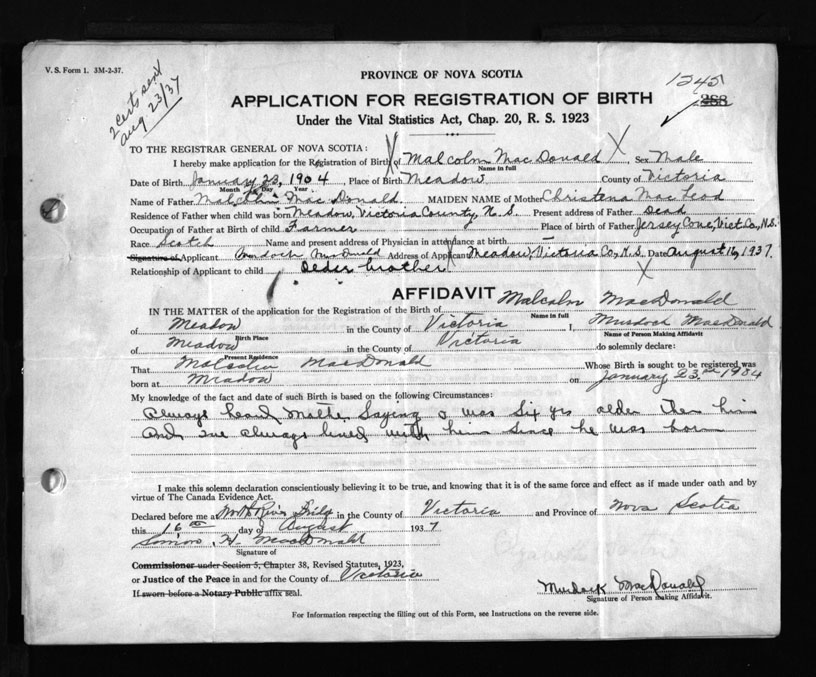 V. S. Form 1. 3M-2-37.
2 certs sent
Aug 23/37
PROVINCE OF NOVA SCOTIA
1245
288
APPLICATION FOR REGISTRATION OF BIRTH
Under the Vital Statistics Act, Chap. 20, R. S. 1923
TO THE REGISTRAR GENERAL OF NOVA SCOTIA:
I hereby make application for the Registration of Birth of Malcolm MacDonald, Sex Male
Name in full
Date of Birth January 23, 1904, Place of Birth Meadow County of Victoria
Month Day Year
Name of Father Malcolm MacDonald MAIDEN NAME of Mother Christena MacLeod
Residence of Father when child was born Meadow, Victoria County, N.S. Present address of Father Dead
Occupation of Father at Birth of child Farmer Place of birth of Father Jersey Cove, Vict Co, N.S.
Race Scotch Name and present address of Physician in attendance at birth
Signature of Applicant Murdoch MacDonald Address of Applicant Meadow, Victoria Co, N.S. Date August 16, 1937.
Relationship of Applicant to child Older brother
AFFIDAVIT
IN THE MATTER of the application for the Registration of the Birth of Malcolm MacDonald
Name in full
of Meadow in the County of Victoria I, Murdoch MacDonald
Birth Place Name of Person Making Affidavit
of Meadow in the County of Victoria do solemnly declare:
Present Residence
That Malcolm MacDonald Whose Birth is sought to be registered was
born at Meadow on January 23rd 1904
My knowledge of the fact and date of such Birth is based on the following Circumstances:
Always heard Mother Saying I was Six yrs older then him
And I've always lived with him since he was born
I make this solemn declaration conscientiously believing it to be true, and knowing that it is of the same force and effect as if made under oath and by
virtue of The Canada Evidence Act.
Declared before me at North River Bridge in the County of Victoria and Province of Nova Scotia
this 16th day of August 1937
Simon H. MacDonald
Signature of
Commissioner under Section 5, Chapter 38, Revised Statutes, 1923,
or Justice of the Peace in and for the County of Victoria
If sworn before a Notary Public affix seal.
Murdock MacDonald
Signature of Person making Affidavit.
For Information respecting the filling out of this Form, see Instructions on the reverse side.